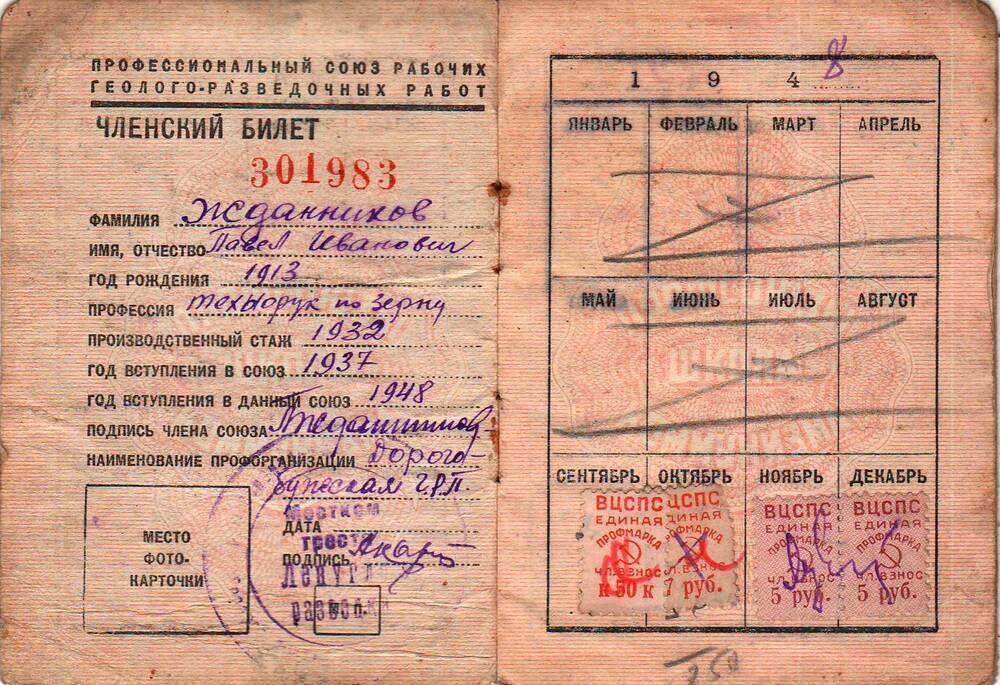 ПРОФЕССИОНАЛЬНЫЙ СОЮЗ РАБОЧИХ
ГЕОЛОГО-РАЗВЕДОЧНЫХ РАБОТ
ЧЛЕНСКИЙ БИЛЕТ
301983
ФАМИЛИЯ Жданников
ИМЯ, ОТЧЕСТВО Павел Иванович
ГОД РОЖДЕНИЯ 1913
ПРОФЕССИЯ по зерну
ПРОИЗВОДСТВЕННЫЙ СТАЖ 1932
ГОД ВСТУПЛЕНИЯ В СОЮЗ 1937
ГОД ВСТУПЛЕНИЯ В ДАННЫЙ СОЮЗ 1948
ПОДПИСЬ ЧЛЕНА СОЮЗА
НАИМЕНОВАНИЕ ПРОФОРГАНИЗАЦИИ Дорого-
бужская г.р.п.
МЕСТО
ФОТО-
КАРТОЧКИ
Местком
ДАТА
треста
ПОДПИСЬ
Ленугле
разведки
М. П.
1948
ЯНВАРЬ ФЕВРАЛЬ МАРТ АПРЕЛЬ
МАЙ ИЮНЬ ИЮЛЬ АВГУСТ
СЕНТЯБРЬ ОКТЯБРЬ НОЯБРЬ ДЕКАБРЬ
ВЦСПС ЦСПС ВЦСПС ВЦСПС
ЕДИНАЯ ДИНАЯ ЕДИНАЯ ЕДИНАЯ
ПРОФМАРКА ОФМАРКА ПРОФМАРКА ПРОФМАРКА
ЧЛ. ВЗНОС Л. ВЗНОС ЧЛ. ВЗНОС ЧЛ. ВЗНОС
50 к 7 руб. 5 руб. 5 руб.
350